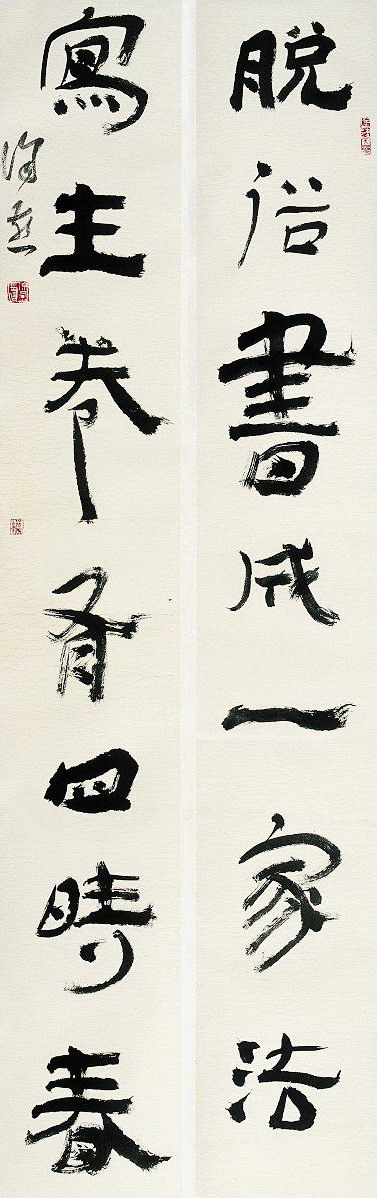 脱俗書成一家法
寫生卷有四時春